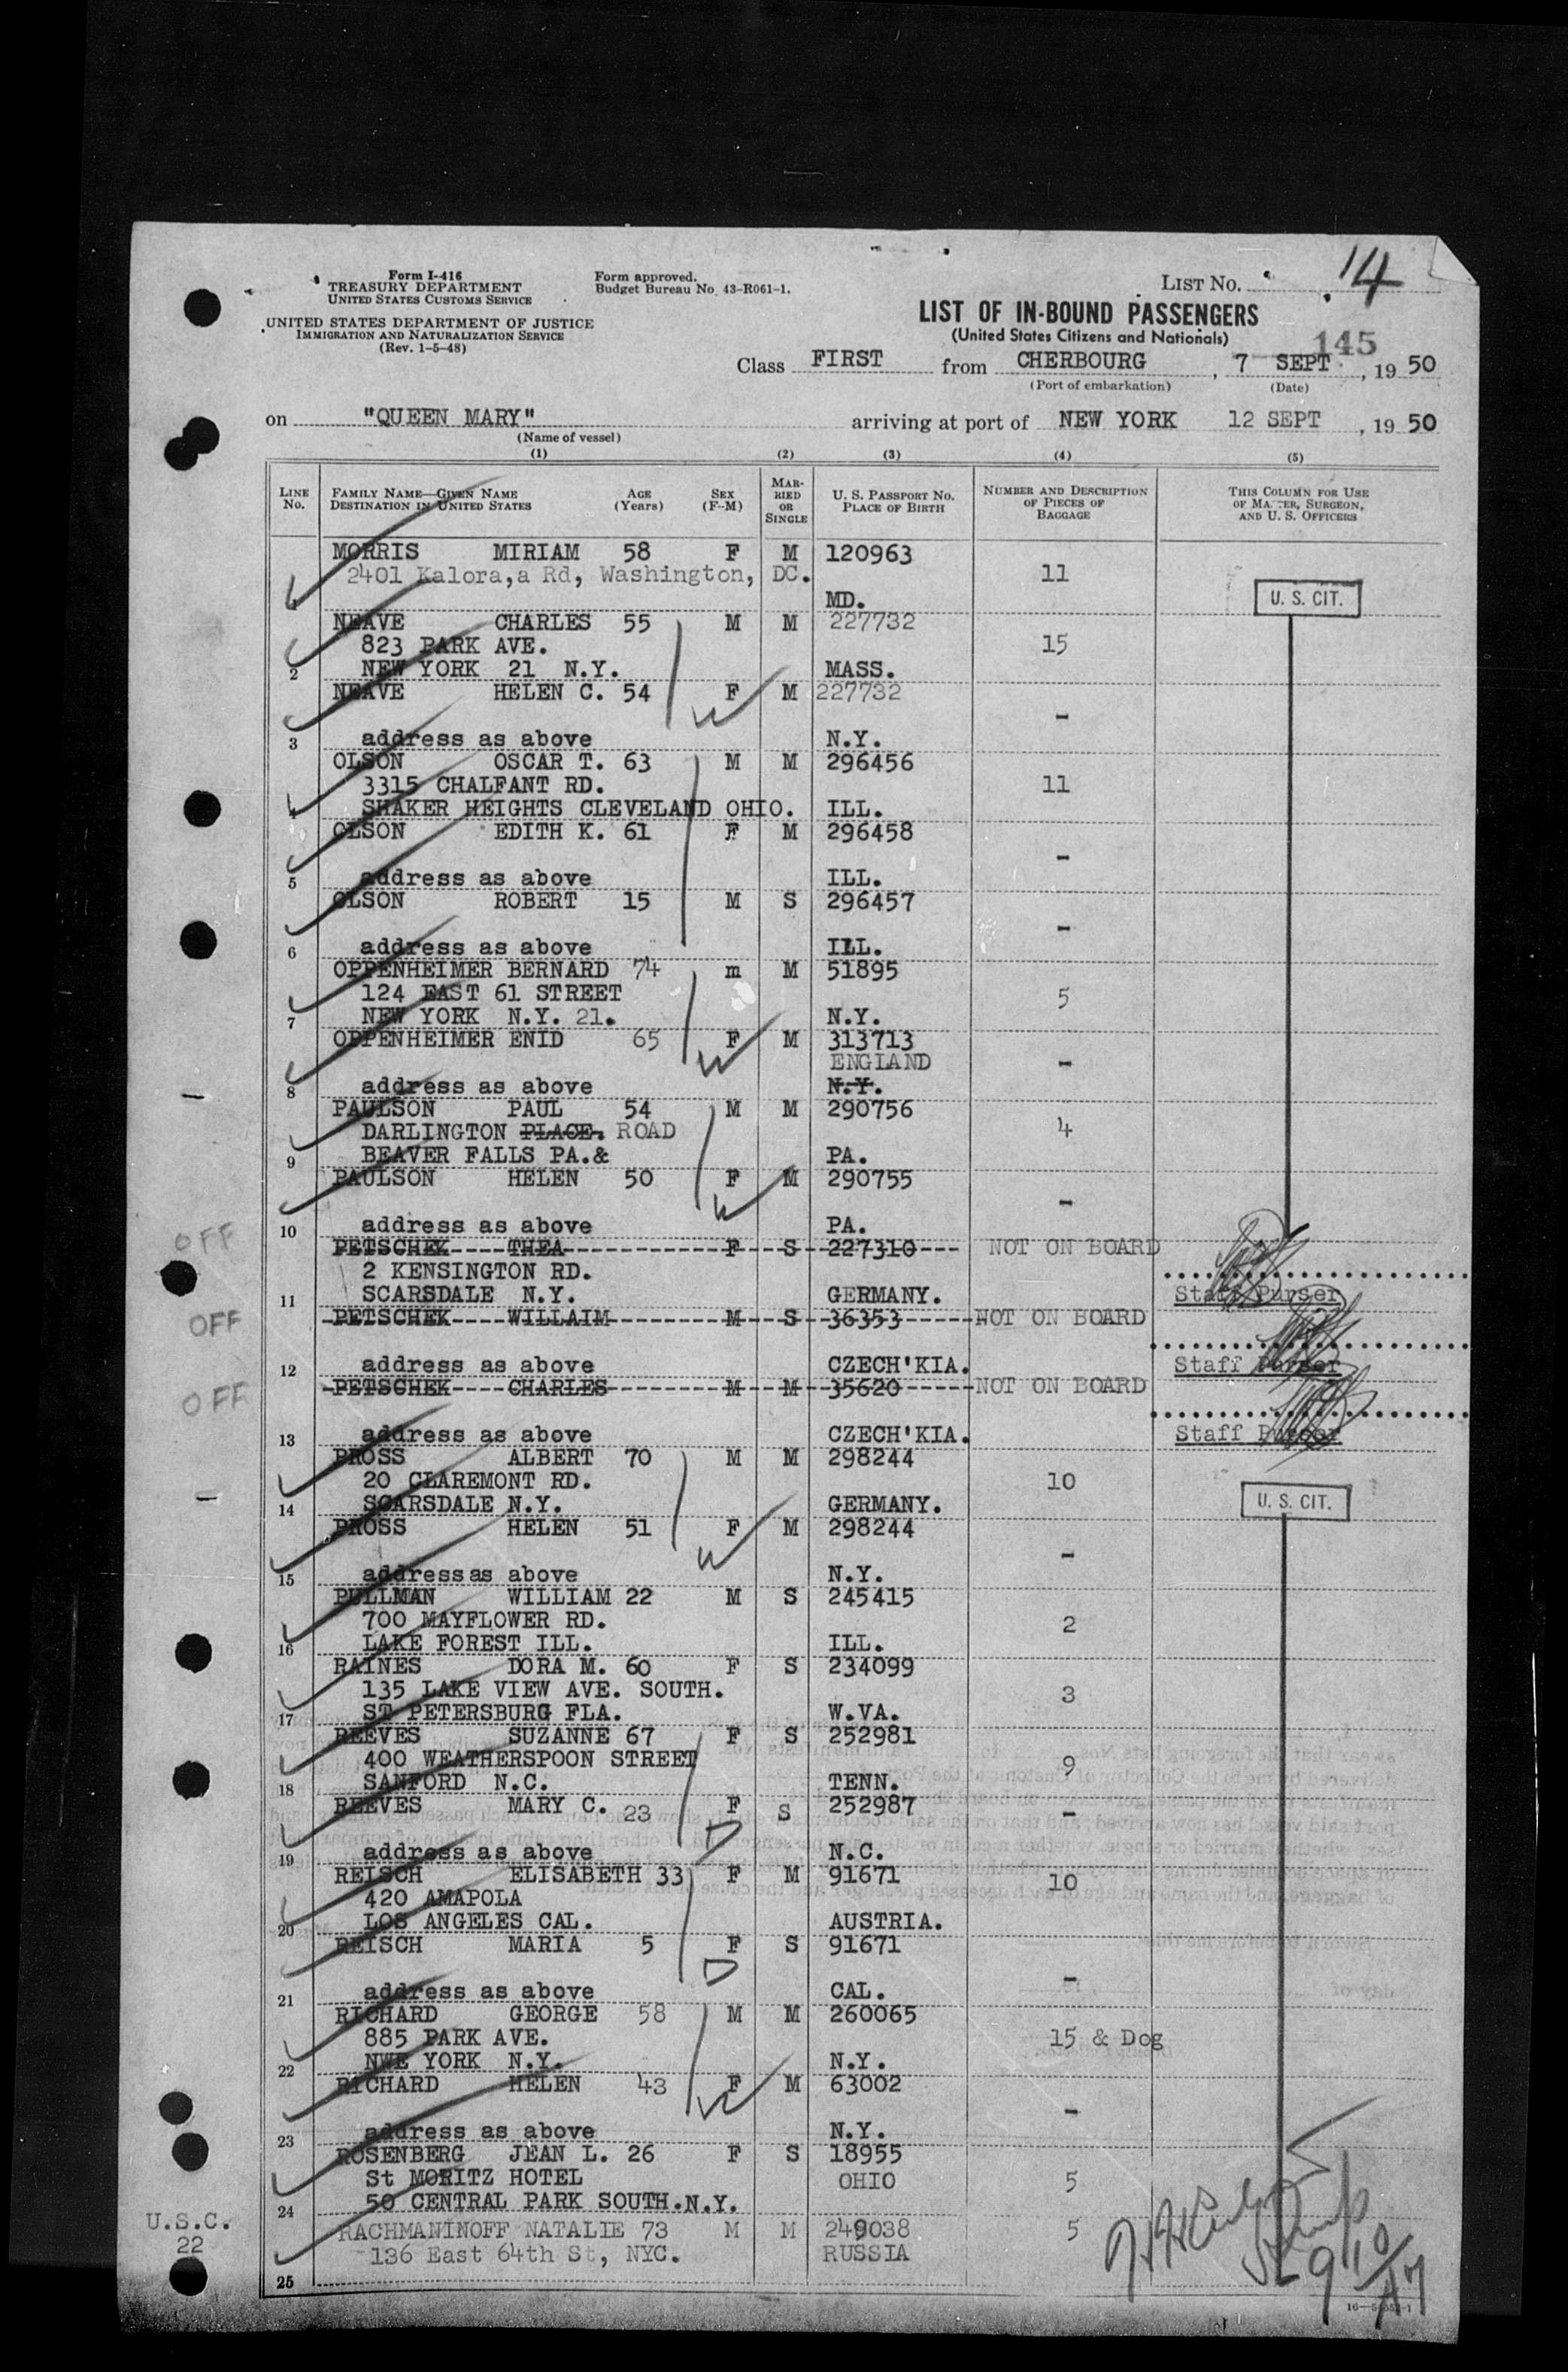 Form I-416
TREASURY DEPARTMENT
UNITED STATES CUSTOMS SERVICE
UNITED STATES DEPARTMENT OF JUSTICE
IMMIGRATION AND NATURALIZATION SERVICE
(Rev. 1-5-48)
Form approved.
Budget Bureau No. 43-R061-1.
LIST NO. 14
LIST OF IN-BOUND PASSENGERS
(United States Citizens and Nationals)
145
Class FIRST from CHERBOURG , 7 SEPT , 19 50
(Port of embarkation) (Date)
on "QUEEN MARY" arriving at port of NEW YORK 12 SEPT , 19 50
(Name of vessel)
(1) (2) (3) (4) (5)
LINE No. FAMILY NAME—GIVEN NAME DESTINATION IN UNITED STATES AGE (Years) SEX (F-M) MARRIED OR SINGLE U. S. PASSPORT NO. PLACE OF BIRTH NUMBER AND DESCRIPTION OF PIECES OF BAGGAGE THIS COLUMN FOR USE OF MASTER, SURGEON, AND U. S. OFFICERS
MORRIS MIRIAM 58 F M 120963
2401 Kalora,a Rd, Washington, DC. 11
1 MD. U. S. CIT.
NEAVE CHARLES 55 M M 227732
823 PARK AVE. 15
2 NEW YORK 21 N.Y. MASS.
NEAVE HELEN C. 54 F M 227732
-
3 address as above N.Y.
OLSON OSCAR T. 63 M M 296456
3315 CHALFANT RD. 11
4 SHAKER HEIGHTS CLEVELAND OHIO. ILL.
OLSON EDITH K. 61 F M 296458
-
5 address as above ILL.
OLSON ROBERT 15 M S 296457
-
6 address as above ILL.
OPPENHEIMER BERNARD 74 m M 51895
124 EAST 61 STREET 5
7 NEW YORK N.Y. 21. N.Y.
OPPENHEIMER ENID 65 F M 313713
ENGLAND -
8 address as above N.Y.
PAULSON PAUL 54 M M 290756
DARLINGTON PLACE. ROAD 4
9 BEAVER FALLS PA.& PA.
PAULSON HELEN 50 F M 290755
-
10 address as above PA.
OFF PETSCHEK THEA F S 227310 NOT ON BOARD
2 KENSINGTON RD.
11 SCARSDALE N.Y. GERMANY. Staff Purser
OFF PETSCHEK WILLAIM M S 36353 NOT ON BOARD
12 address as above CZECH'KIA. Staff Purser
OFF PETSCHEK CHARLES M M 35620 NOT ON BOARD
13 address as above CZECH'KIA. Staff Purser
PROSS ALBERT 70 M M 298244
20 CLAREMONT RD. 10
14 SCARSDALE N.Y. GERMANY. U. S. CIT.
PROSS HELEN 51 F M 298244
-
15 address as above N.Y.
PULLMAN WILLIAM 22 M S 245415
700 MAYFLOWER RD. 2
16 LAKE FOREST ILL. ILL.
RAINES DORA M. 60 F S 234099
135 LAKE VIEW AVE. SOUTH. 3
17 ST PETERSBURG FLA. W.VA.
REEVES SUZANNE 67 F S 252981
400 WEATHERSPOON STREET 9
18 SANFORD N.C. TENN.
REEVES MARY C. 23 F S 252987
-
19 address as above N.C.
REISCH ELISABETH 33 F M 91671 10
420 AMAPOLA
20 LOS ANGELES CAL. AUSTRIA.
REISCH MARIA 5 F S 91671
-
21 address as above CAL.
RICHARD GEORGE 58 M M 260065
885 PARK AVE. 15 & Dog
22 NWE YORK N.Y. N.Y.
RICHARD HELEN 43 F M 63002
-
23 address as above N.Y.
ROSENBERG JEAN L. 26 F S 18955
St MORITZ HOTEL OHIO 5
24 50 CENTRAL PARK SOUTH.N.Y.
RACHMANINOFF NATALIE 73 M M 249038 5
136 East 64th St, NYC. RUSSIA
25
U.S.C.
22